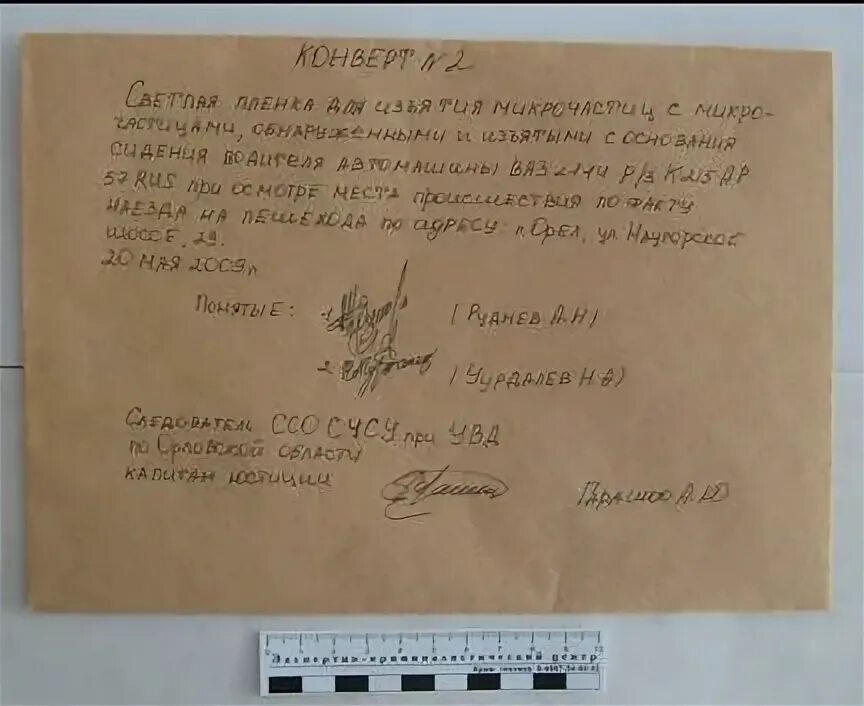 КОНВЕРТ №2
СВЕТЛАЯ ПЛЕНКА ДЛЯ ИЗЪЯТИЯ МИКРОЧАСТИЦ С МИКРО-
ЧАСТИЦАМИ, ОБНАРУЖЕННЫМИ И ИЗЪЯТЫМИ С ОСНОВАНИЯ
СИДЕНИЯ ВОДИТЕЛЯ АВТОМАШИНЫ ВАЗ 2114 Р/З К215АР
57 RUS ПРИ ОСМОТРЕ МЕСТА ПРОИСШЕСТВИЯ ПО ФАКТУ
НАЕЗДА НА ПЕШЕХОДА ПО АДРЕСУ: г. ОРЕЛ, УЛ. НАУГОРСКОЕ
ШОССЕ, 29.
20 МАЯ 2009г.
ПОНЯТЫЕ: 1
(РУДНЕВ А.Н)
2
СЛЕДОВАТЕЛЬ ССО СУСУ ПРИ УВД
ПО ОРЛОВСКОЙ ОБЛАСТИ
КАПИТАН ЮСТИЦИИ
А.Ю